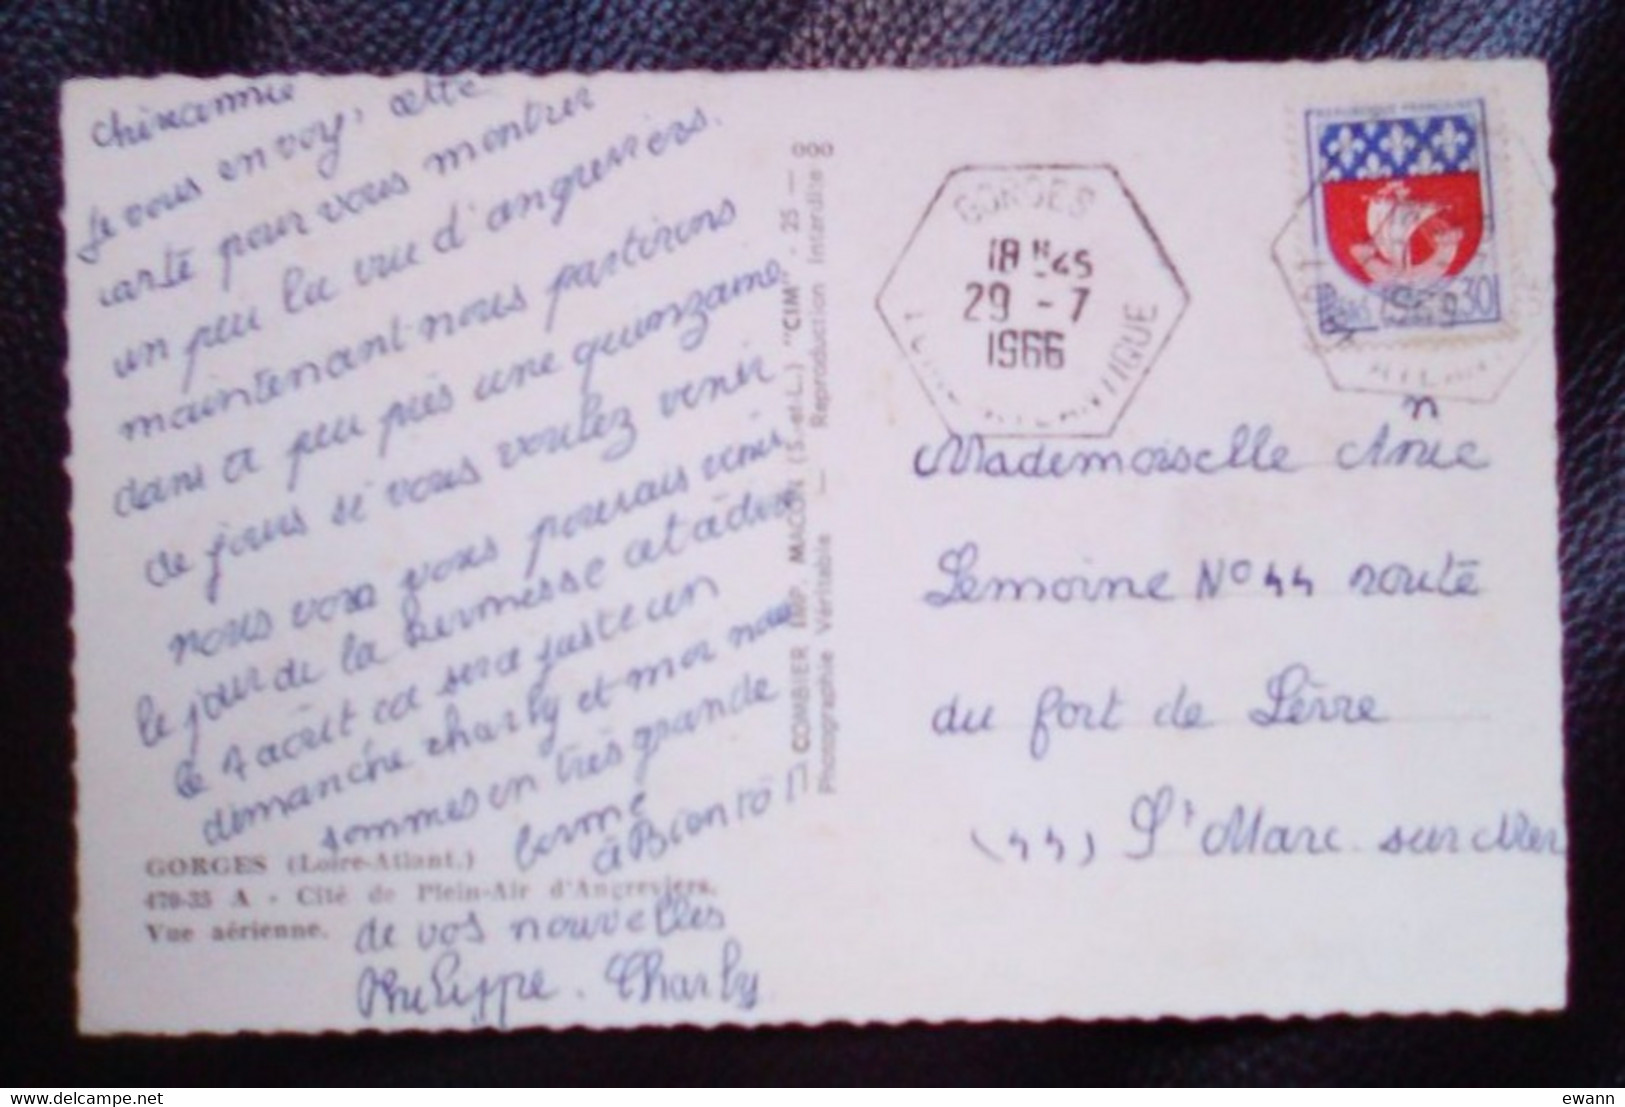 chère annie
je vous envoy, cette
carte pour vous montrer
un peu la vue d'angreviers.
maintenant nous partirons
dans a peu près une quinzaine
de jours si vous voulez venir
nous voir vous pourais venir
le jour de la kermesse cet à dire
le 7 août ca sera juste un
dimanche charly et moi nous
sommes en très grande
forme
à Bientôt
de vos nouvelles
Philippe. Charly
GORGES (Loire-Atlant.)
470-35 A - Cité de Plein-Air d'Angreviers.
Vue aérienne.
COMBIER IMP. MACON (S.-et-L.) "CIM" - 25 — 000
Photographie Véritable — Reproduction Interdite
GORGES
18 H 45
29 - 7
1966
LOIRE ATLANTIQUE
REPUBLIQUE FRANÇAISE
0,30
n
Mademoiselle Anie
Lemoine N° 44 route
du fort de Lèvre
(44) St Marc sur Mer
delcampe.net
ewann